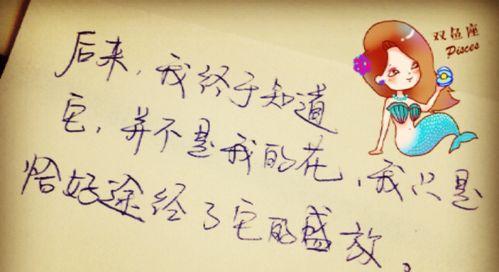 后来，我终于知道
它，并不是我的花，我只是
恰好途经了它的盛放。
双鱼座
Pisces